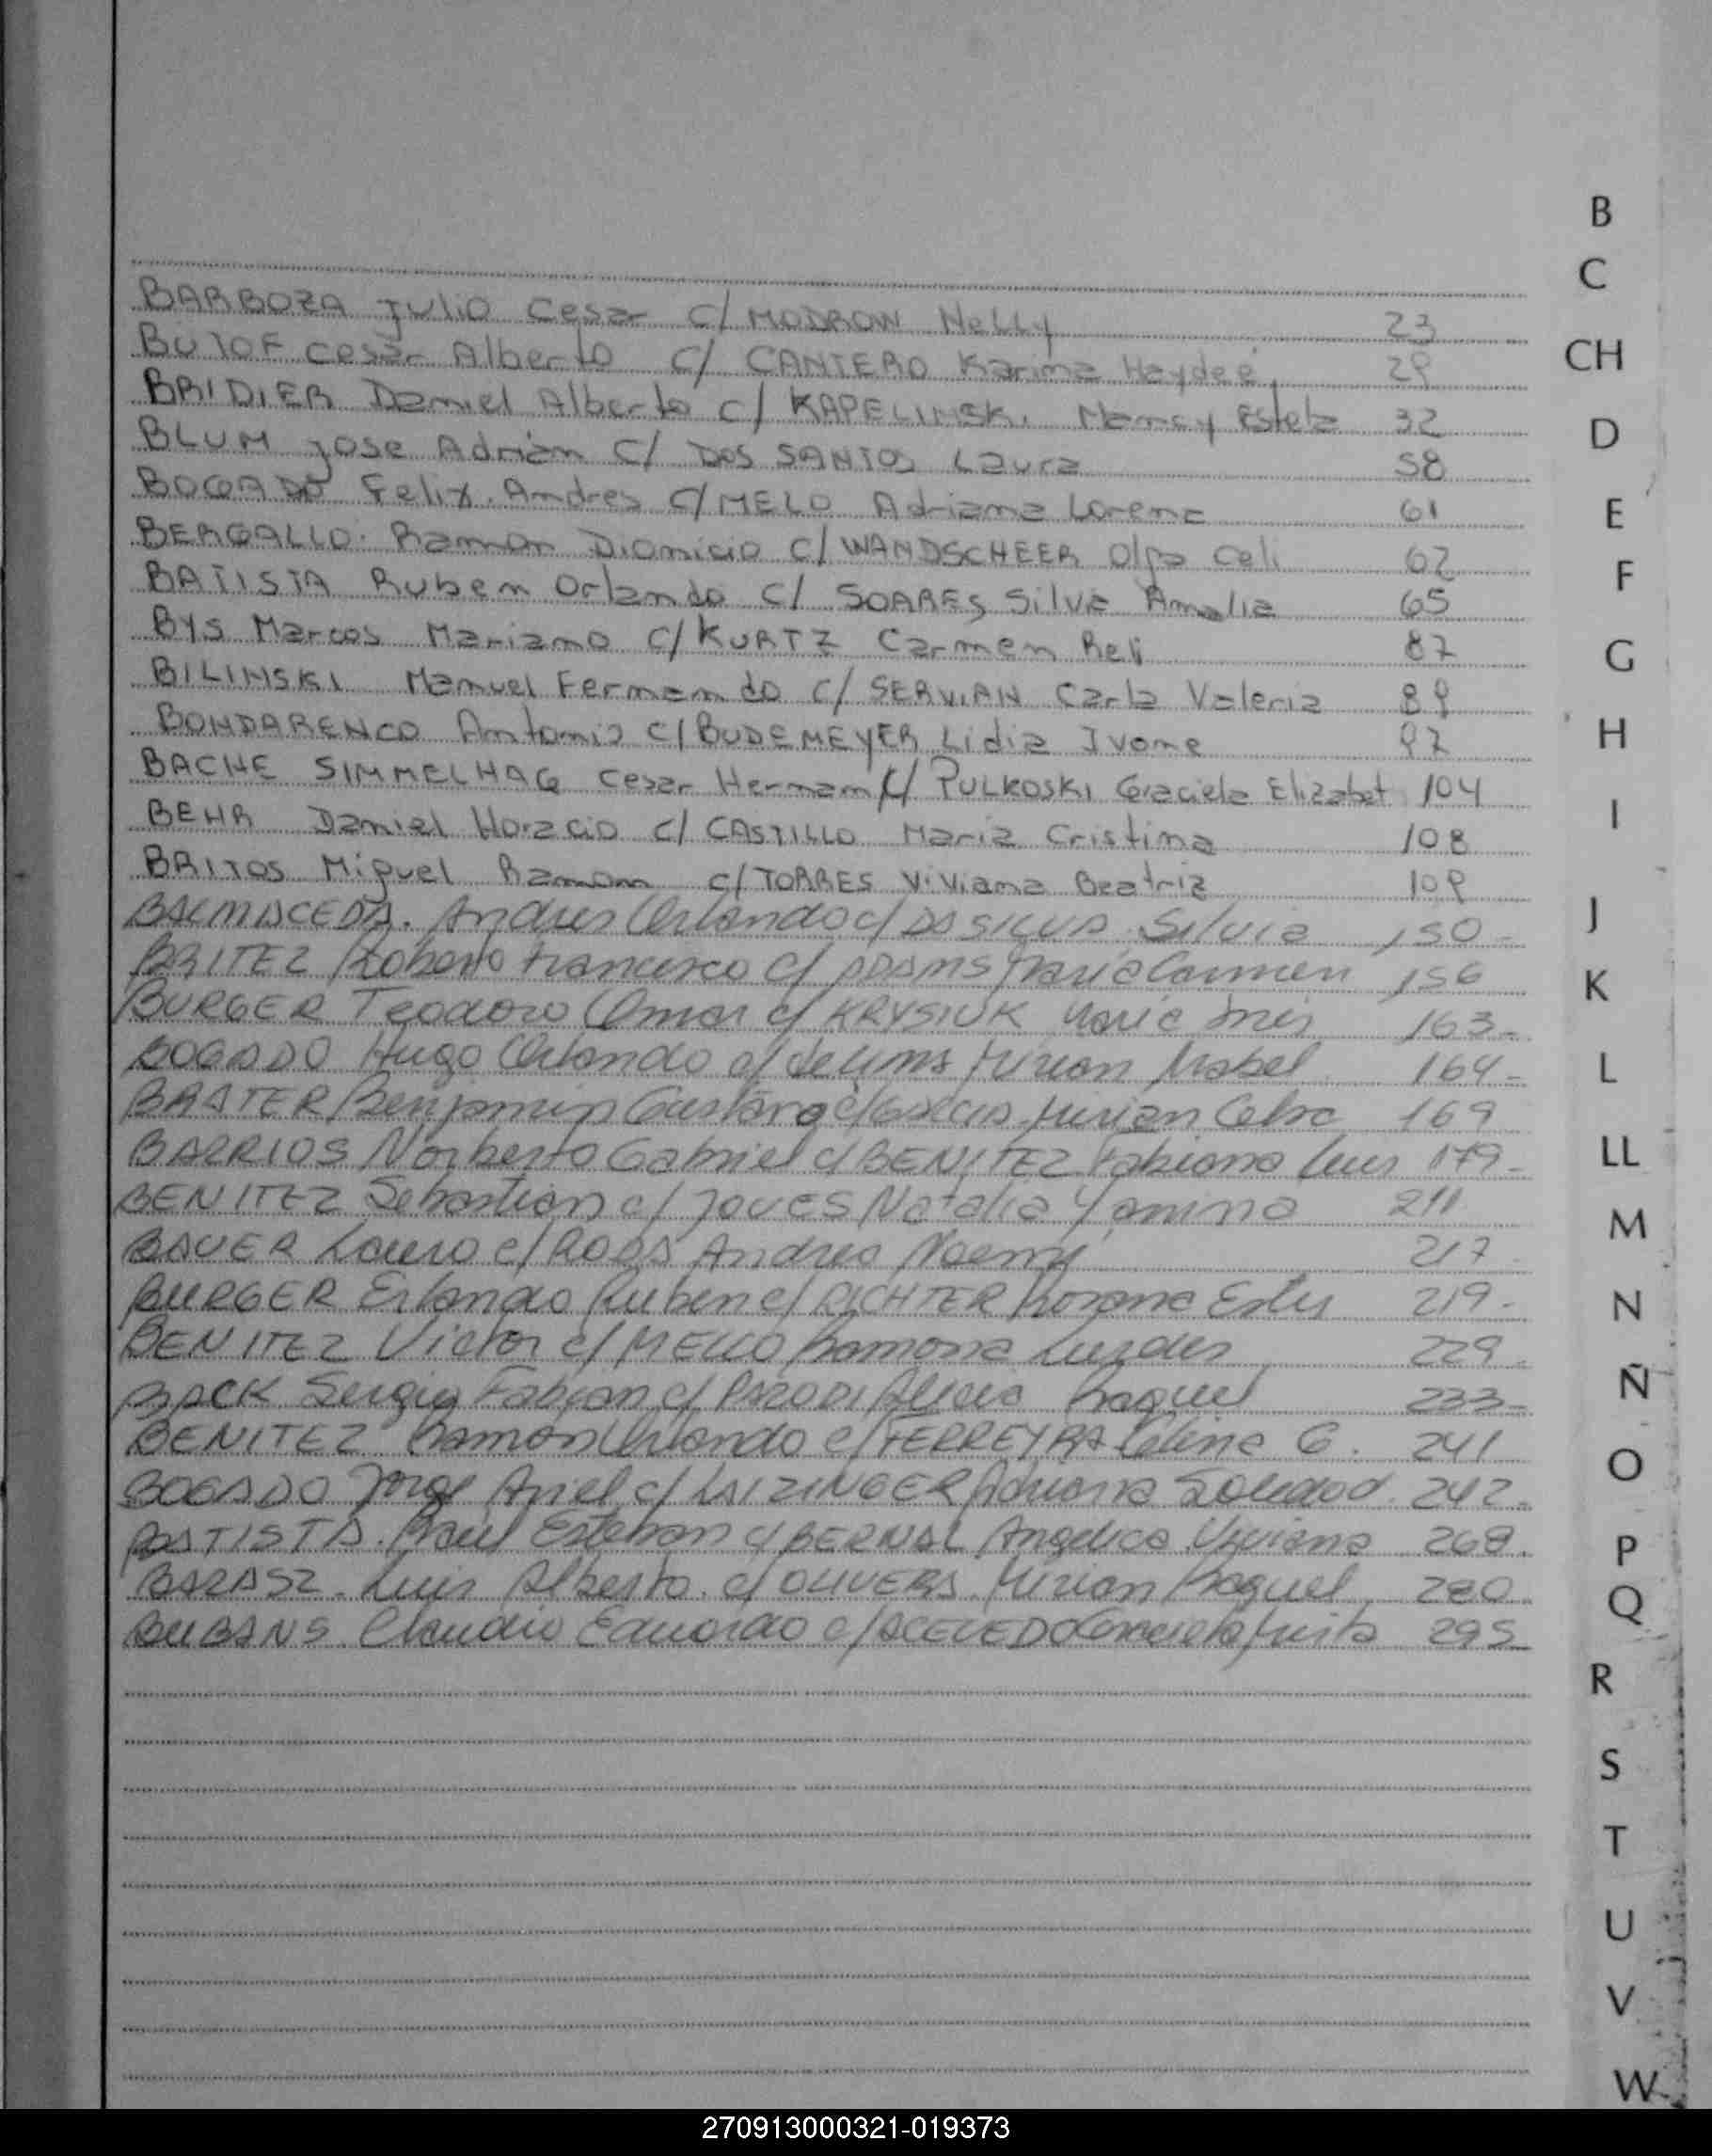 BARBOZA Julio Cesar c/ MODROW Nelly 23
BUTOF Cesar Alberto c/ CANTERO Karina Haydeé 29
BRIDIER Daniel Alberto c/ KAPELINSKI Nancy Estela 32
BLUM Jose Adrián c/ DOS SANTOS Laura 58
BOGADO Felix Andres c/ MELO Adriana Lorena 61
BERGALLO Ramon Dionicio c/ WANDSCHEER Olga Celi 62
BATISTA Ruben Orlando c/ SOARES Silvia Amalia 65
BYS Marcos Mariano c/ KURTZ Carmen Reli 87
BILINSKI Manuel Fernando c/ SERVIAN Carla Valeria 89
BONDARENCO Antonio c/ BUDEMEYER Lidia Ivone 97
BACHE SIMMELHAG Cesar Hernam c/ PULKOSKI Graciela Elizabet 104
BEHR Daniel Horacio c/ CASTILLO Maria Cristina 108
BRITOS Miguel Ramon c/ TORRES Viviana Beatriz 109
BALMACEDA. Andres Orlando c/ DA SILVA Silvia 150-
BRITEZ Roberto Francisco c/ ADAMS Maria Carmen 156
BURGER Teodoro Omar c/ KRYSIUK Maria Ines 163-
BOGADO Hugo Orlando c/ de lima Mirian Mabel 164-
Benjamin Gustavo c/ Mirian Celia 169
BARRIOS Norberto Gabriel c/ BENITEZ Fabiana 179-
BENITEZ Sebastian c/ Natalia Yanina 211
BAUER Lauro c/ RODA Andrea Noemi 217
BURGER Erlando Ruben c/ RICHTER Rosana Ester 219-
BENITEZ Victor c/ MELLO Ramona Lurdes 229
BACK Sergio Fabian c/ PARODI Alicia Raquel 233-
BENITEZ Ramon Orlando c/ FERREYRA Celina G. 241
BOGADO Jorge Ariel c/ LAIZINGER Adriana Soledad 242-
BATISTA. Raul Esteban c/ BERNAL Angelica Viviana 268.
BARASZ. Luis Alberto. c/ OLIVERA Mirian Raquel 280
Claudio Eduardo c/ ACEVEDO 295
B
C
CH
D
E
F
G
H
I
J
K
L
LL
M
N
Ñ
O
P
Q
R
S
T
U
V
W
270913000321-019373